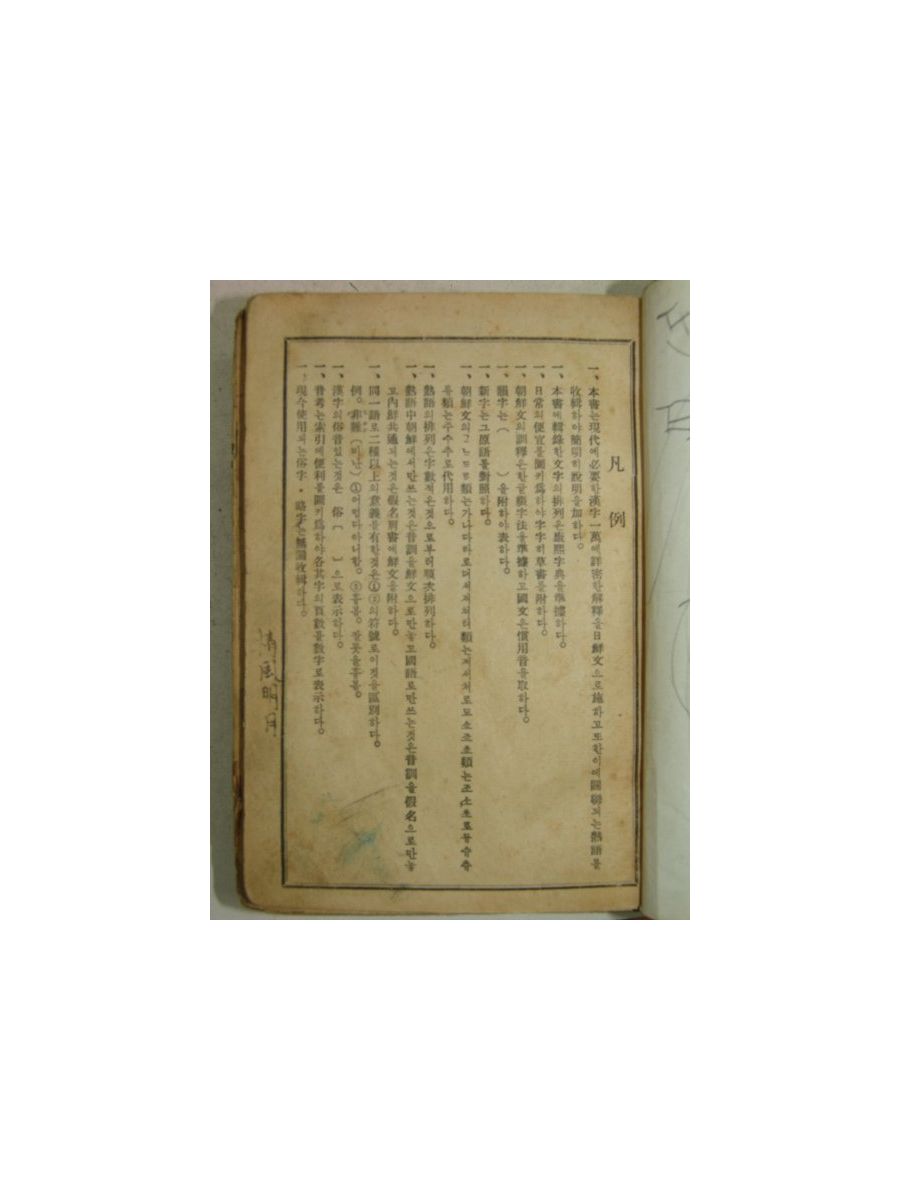 凡例
一、本書는現代에必要한漢字一萬에詳密한解釋을日鮮文으로施하고또한이에關聯되는熟語를
收輯하야簡明히說明을加하다。
一、本書에輯錄한文字의排列은康熙字典을準據하다。
一、日常의便宜를圖키爲하야字字히草書를附하다。
一、朝鮮文의訓釋은한글綴字法을準據하고國文은慣用音을取하다。
一、韻字는（　）을附하야表하다。
一、新字는그原語를對照하다。
一、朝鮮文의 類는가나다라로 類는저서처로도소조초類는조소초로듀슈츄
류類는주수추로代用하다。
一、熟語의排列은字數적은것으로부터順次排列하다。
一、熟語中朝鮮에서만쓰는것은音訓을鮮文으로만놓고國語로만쓰는것은音訓을假名으로만놓
고內鮮共通되는것은假名別書에鮮文을附하다。
一、同一語로二種以上의意義를有한것은①②의符號로이것을區別하다。
例。非難(비난)①어렵다아니함。②흉봄。잘못을흉봄。
一、漢字의俗音있는것은 俗〔　〕으로表示하다。
一、音考는索引에便利를圖키爲하야各其字의頁數를數字로表示하다。
一、現今使用되는俗字・略字는無漏收輯하다。
清風明月